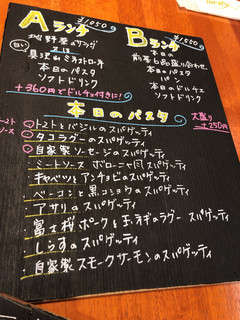 Aランチ ¥1050
地野菜のサラダ
又は
具沢山ミネストローネ
本日のパスタ
ソフトドリンク
Bランチ ¥1550
本日の
前菜6品盛り合わせ
本日のパスタ
パン
本日のドルチェ
ソフトドリンク
+360円でドルチェ付きに!
本日のパスタ
大盛り
+250円
トマトとバジルのスパゲッティ
タコラグーのスパゲッティ
自家製ソーセージのスパゲッティ
ミートソース ボローニャ風スパゲッティ
キャベツとアンチョビのスパゲッティ
ベーコンと黒コショウのスパゲッティ
アサリのスパゲッティ
富士桜ポークと玉ネギのラグー スパゲッティ
しらすのスパゲッティ
自家製スモークサーモンのスパゲッティ